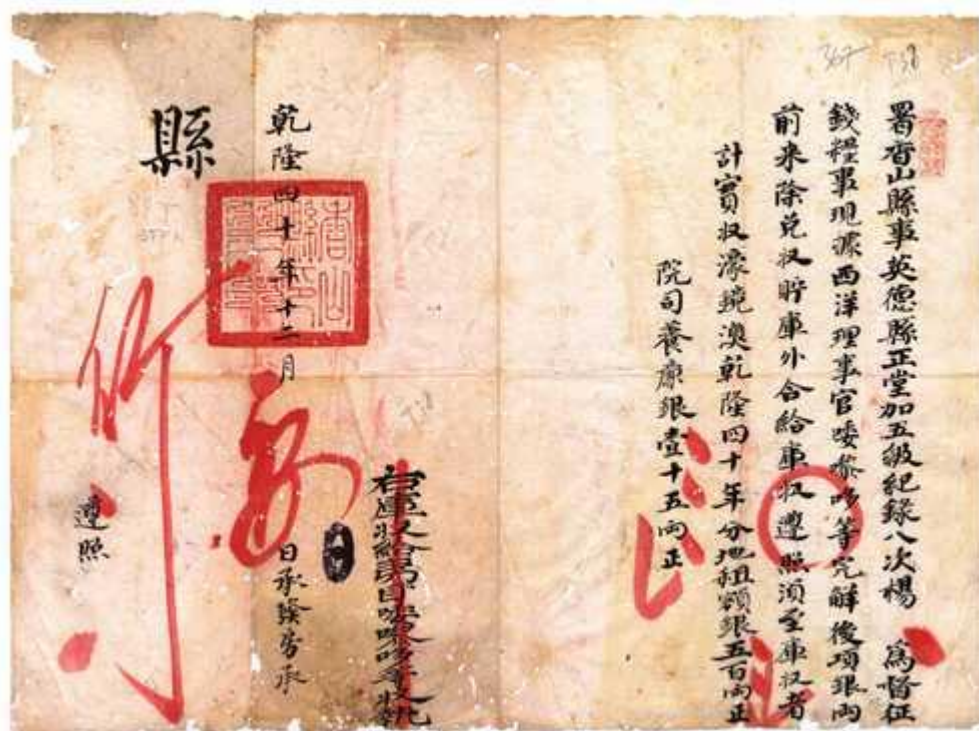 署香山縣事英德縣正堂加五級紀錄八次楊 為督征
錢糧事現據西洋理事官喽嚟哆等完解後項銀兩
前來除兌收貯庫外合給庫收遵照須至庫收者
計實收濠鏡澳乾隆四十年分地租額銀五百両正
院司養廉銀壹十五両正
右庫收給
乾隆四十年十二月 日承發房承
縣
遵照
香山縣印